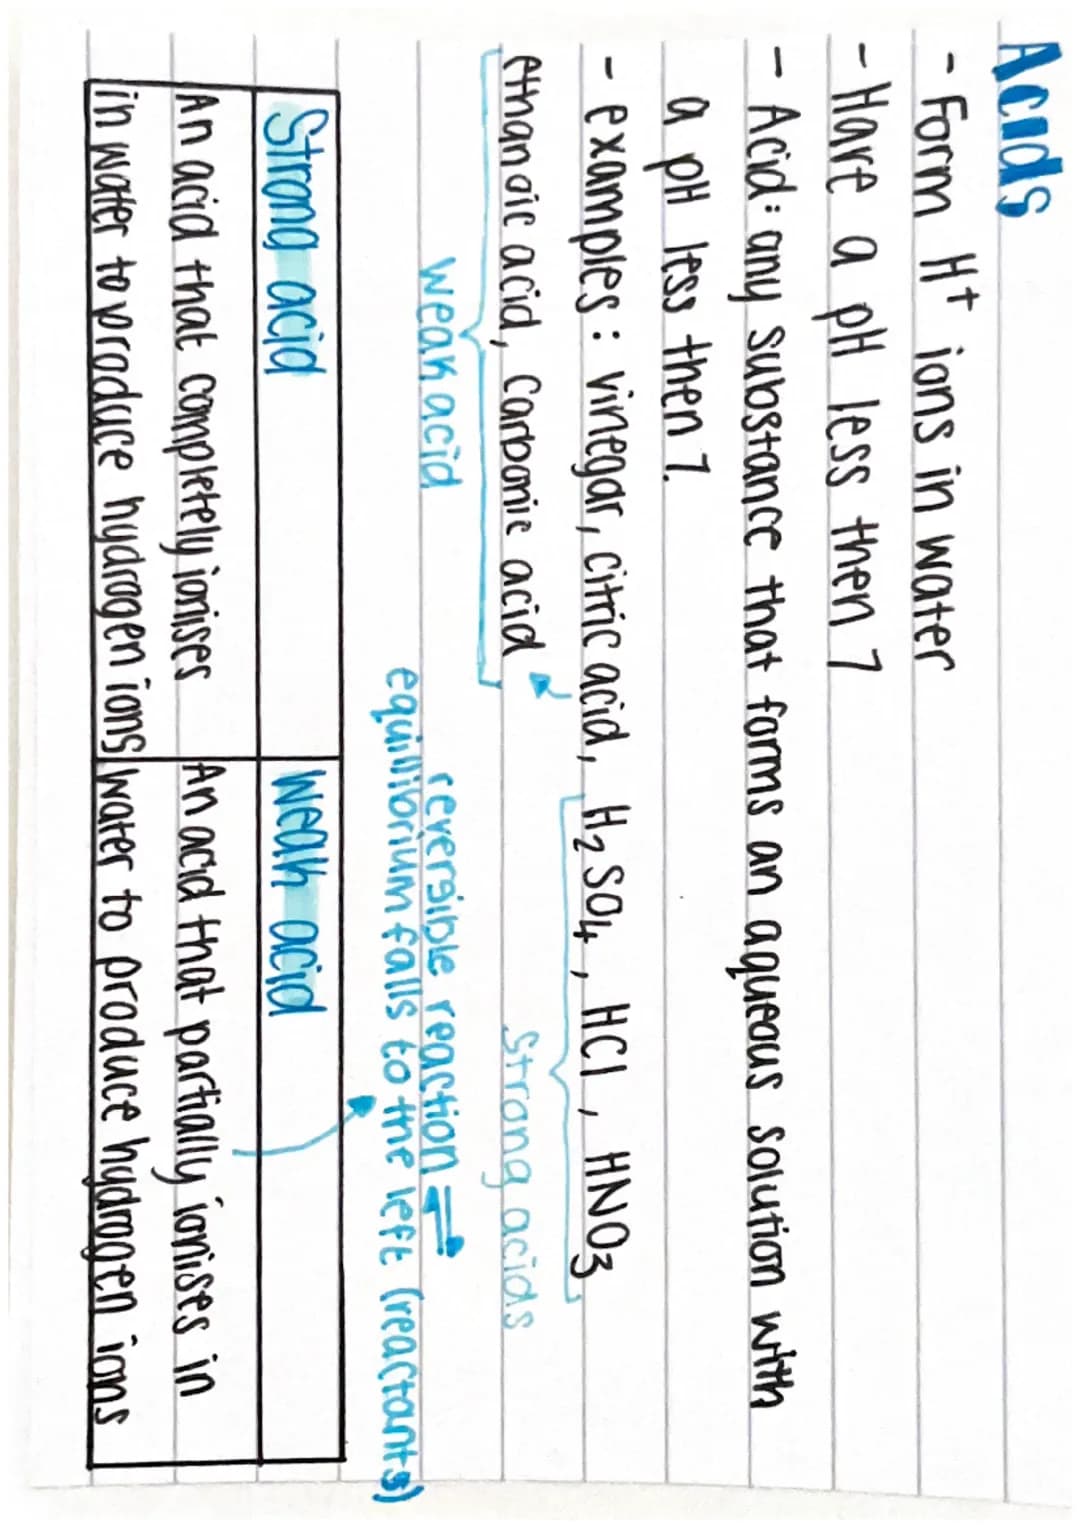 Acids
- Form H⁺ ions in water
- Have a pH less then 7
- Acid: any substance that forms an aqueous solution with
a pH less then 7.
- examples: vinegar, citric acid, H₂SO₄, HCl, HNO₃
ethanoic acid, carbonic acid
strong acids
weak acid
reversible reaction ⇌
equillibrium falls to the left (reactants)
Strong acid
weak acid
An acid that completely ionises
in water to produce hydrogen ions
An acid that partially ionises in
water to produce hydrogen ions